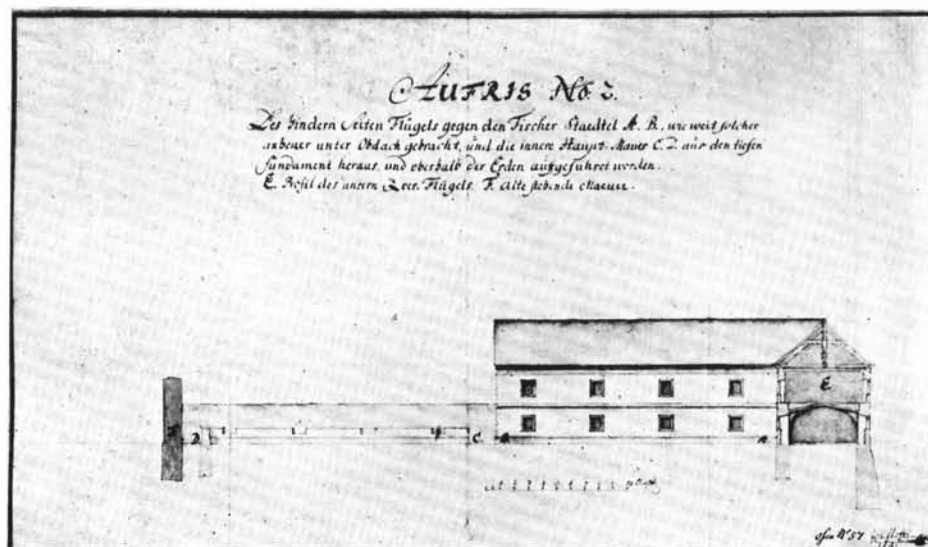 AUFRIS No. 2.
Des hindern Seiten Flügels gegen den Fischer Staedtel A. B. wie weit solcher
anheuer unter Obdach gebracht, und die innere Haupt-Mauer C. D. aus den tiefen
fundament heraus, und oberhalb der Erden aufgeführet worden.
E. Profil des untern Zver. Flügels. F. Alte stehende Mauer.
E
D C B A
Ofen No 57